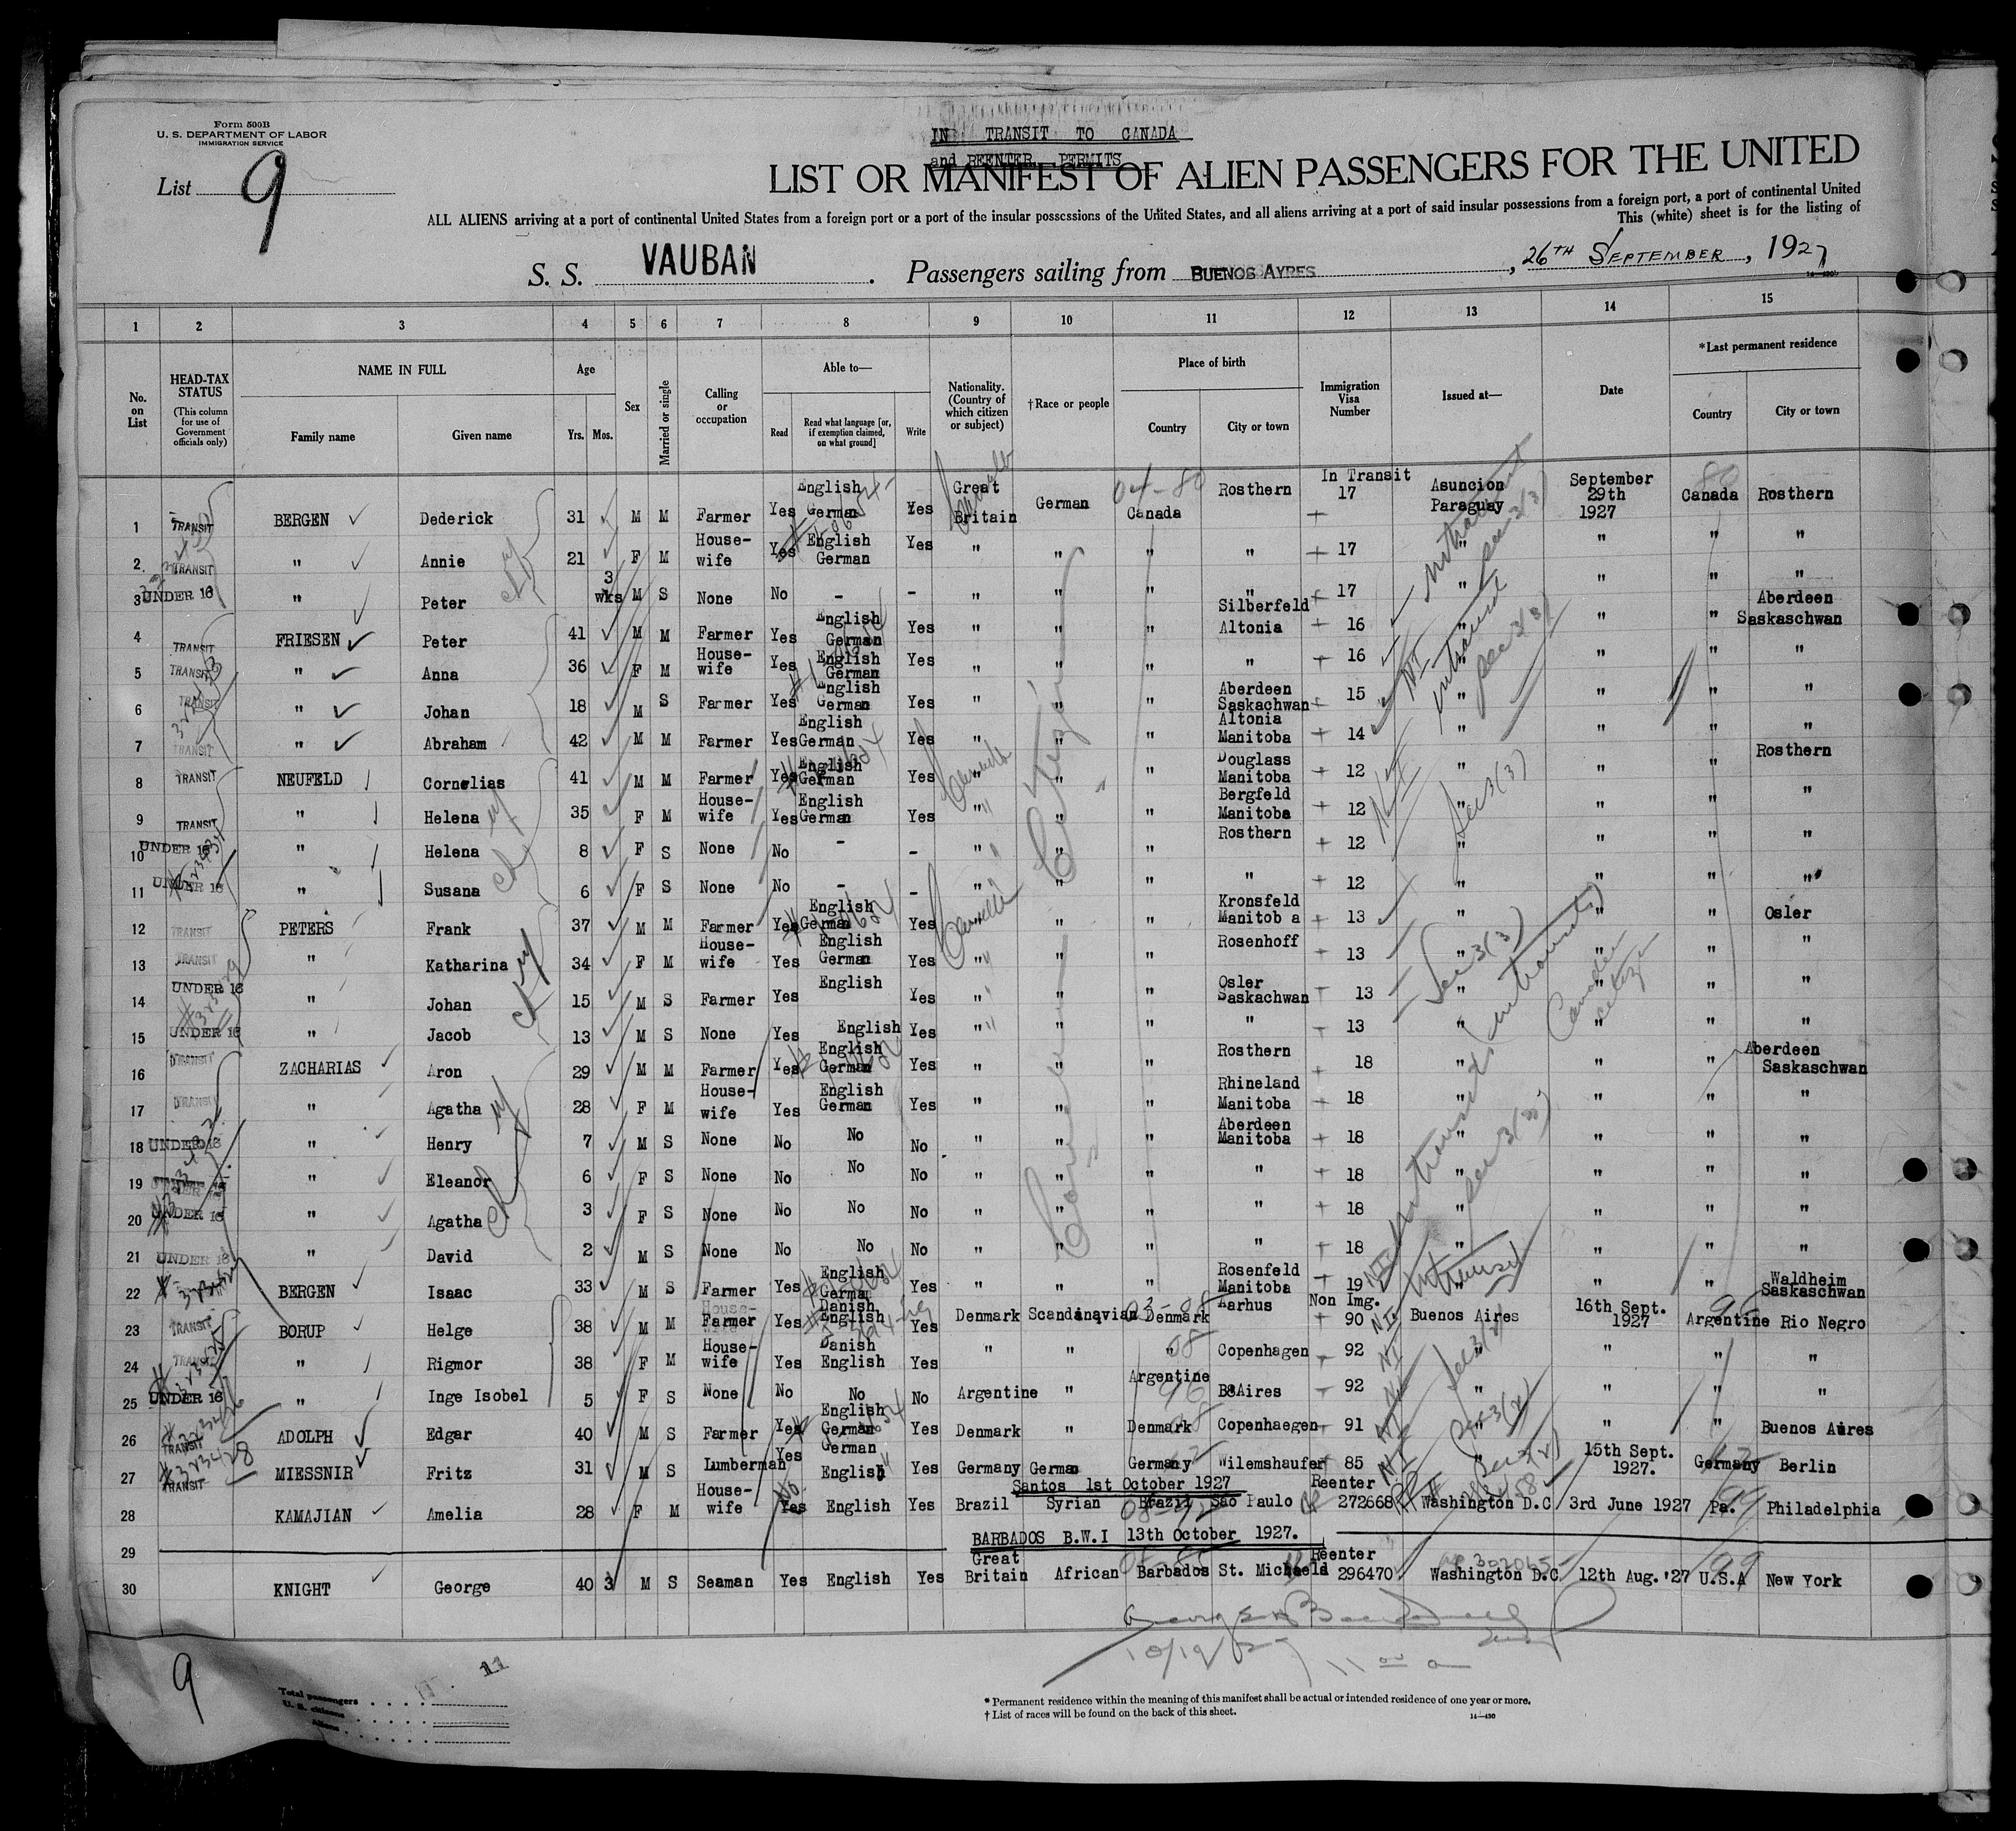 Form 500B
U. S. DEPARTMENT OF LABOR
IMMIGRATION SERVICE
List 9
IN TRANSIT TO CANADA
and REENTER PERMITS
LIST OR MANIFEST OF ALIEN PASSENGERS FOR THE UNITED
ALL ALIENS arriving at a port of continental United States from a foreign port or a port of the insular possessions of the United States, and all aliens arriving at a port of said insular possessions from a foreign port, a port of continental United
This (white) sheet is for the listing of
S. S. VAUBAN. Passengers sailing from BUENOS AYRES, 26TH SEPTEMBER, 1927
1 2 3 4 5 6 7 8 9 10 11 12 13 14 15
No. on List
HEAD-TAX STATUS (This column for use of Government officials only)
NAME IN FULL Family name Given name
Age Yrs. Mos.
Sex
Married or single
Calling or occupation
Able to— Read Read what language [or, if exemption claimed, on what ground] Write
Nationality. (Country of which citizen or subject)
†Race or people
Place of birth Country City or town
Immigration Visa Number
Issued at—
Date
*Last permanent residence Country City or town
1 TRANSIT BERGEN Dederick 31 M M Farmer Yes English German Yes Great Britain German Canada Rosthern In Transit 17 Asuncion Paraguay September 29th 1927 Canada Rosthern
2 TRANSIT " Annie 21 F M House-wife Yes English German Yes " " " " 17 " " " "
3 UNDER 16 " Peter 3 wks M S None No - - " " " " 17 " " " "
4 TRANSIT FRIESEN Peter 41 M M Farmer Yes English German Yes " " " Silberfeld Altonia 16 " " " Aberdeen Saskaschwan
5 TRANSIT " Anna 36 F M House-wife Yes English German Yes " " " " 16 " " " "
6 TRANSIT " Johan 18 M S Farmer Yes English German Yes " " " Aberdeen Saskachwan 15 " " " "
7 TRANSIT " Abraham 42 M M Farmer Yes English German Yes " " " Altonia Manitoba 14 " " " "
8 TRANSIT NEUFELD Cornelias 41 M M Farmer Yes English German Yes " " " Douglass Manitoba 12 " " " Rosthern
9 TRANSIT " Helena 35 F M House-wife Yes English German Yes " " " Bergfeld Manitoba 12 " " " "
10 UNDER 16 " Helena 8 F S None No - - " " " Rosthern 12 " " " "
11 UNDER 16 " Susana 6 F S None No - - " " " " 12 " " " "
12 TRANSIT PETERS Frank 37 M M Farmer Yes English German Yes " " " Kronsfeld Manitob a 13 " " " Osler
13 TRANSIT " Katharina 34 F M House-wife Yes English German Yes " " " Rosenhoff 13 " " " "
14 UNDER 16 " Johan 15 M S Farmer Yes English Yes " " " Osler Saskachwan 13 " " " "
15 UNDER 16 " Jacob 13 M S None Yes English Yes " " " " 13 " " " "
16 TRANSIT ZACHARIAS Aron 29 M M Farmer Yes English German Yes " " " Rosthern 18 " " " Aberdeen Saskaschwan
17 TRANSIT " Agatha 28 F M House-wife Yes English German Yes " " " Rhineland Manitoba 18 " " " "
18 UNDER 16 " Henry 7 M S None No No No " " " Aberdeen Manitoba 18 " " " "
19 UNDER 16 " Eleanor 6 F S None No No No " " " " 18 " " " "
20 UNDER 16 " Agatha 3 F S None No No No " " " " 18 " " " "
21 UNDER 16 " David 2 M S None No No No " " " " 18 " " " "
22 BERGEN Isaac 33 M S Farmer Yes English German Yes " " " Rosenfeld Manitoba 19 " " " Waldheim Saskaschwan
23 TRANSIT BORUP Helge 38 M M Farmer Yes Danish English Yes Denmark Scandinavian Denmark Aarhus Non Img. 90 Buenos Aires 16th Sept. 1927 Argentine Rio Negro
24 TRANSIT " Rigmor 38 F M House-wife Yes Danish English Yes " " " Copenhagen 92 " " " "
25 UNDER 16 " Inge Isobel 5 F S None No No No Argentine " Argentine BsAires 92 " " " "
26 TRANSIT ADOLPH Edgar 40 M S Farmer Yes English German Yes Denmark " Denmark Copenhaegen 91 " " " Buenos Aires
27 TRANSIT MIESSNIR Fritz 31 M S Lumberman Yes German English Yes Germany German Germany Wilemshaufer 85 " 15th Sept. 1927. Germany Berlin
Santos 1st October 1927
28 KAMAJIAN Amelia 28 F M House-wife Yes English Yes Brazil Syrian Brazil Sao Paulo Reenter 272668 Washington D.C 3rd June 1927 Pa. Philadelphia
29 BARBADOS B.W.I 13th October 1927.
30 KNIGHT George 40 3 M S Seaman Yes English Yes Great Britain African Barbados St. Micheals Reenter 296470 Washington D.C 12th Aug. '27 U.S.A New York
10/19/27
9
11
Total passengers
U. S. citizens
Aliens
* Permanent residence within the meaning of this manifest shall be actual or intended residence of one year or more.
† List of races will be found on the back of this sheet.
14—430